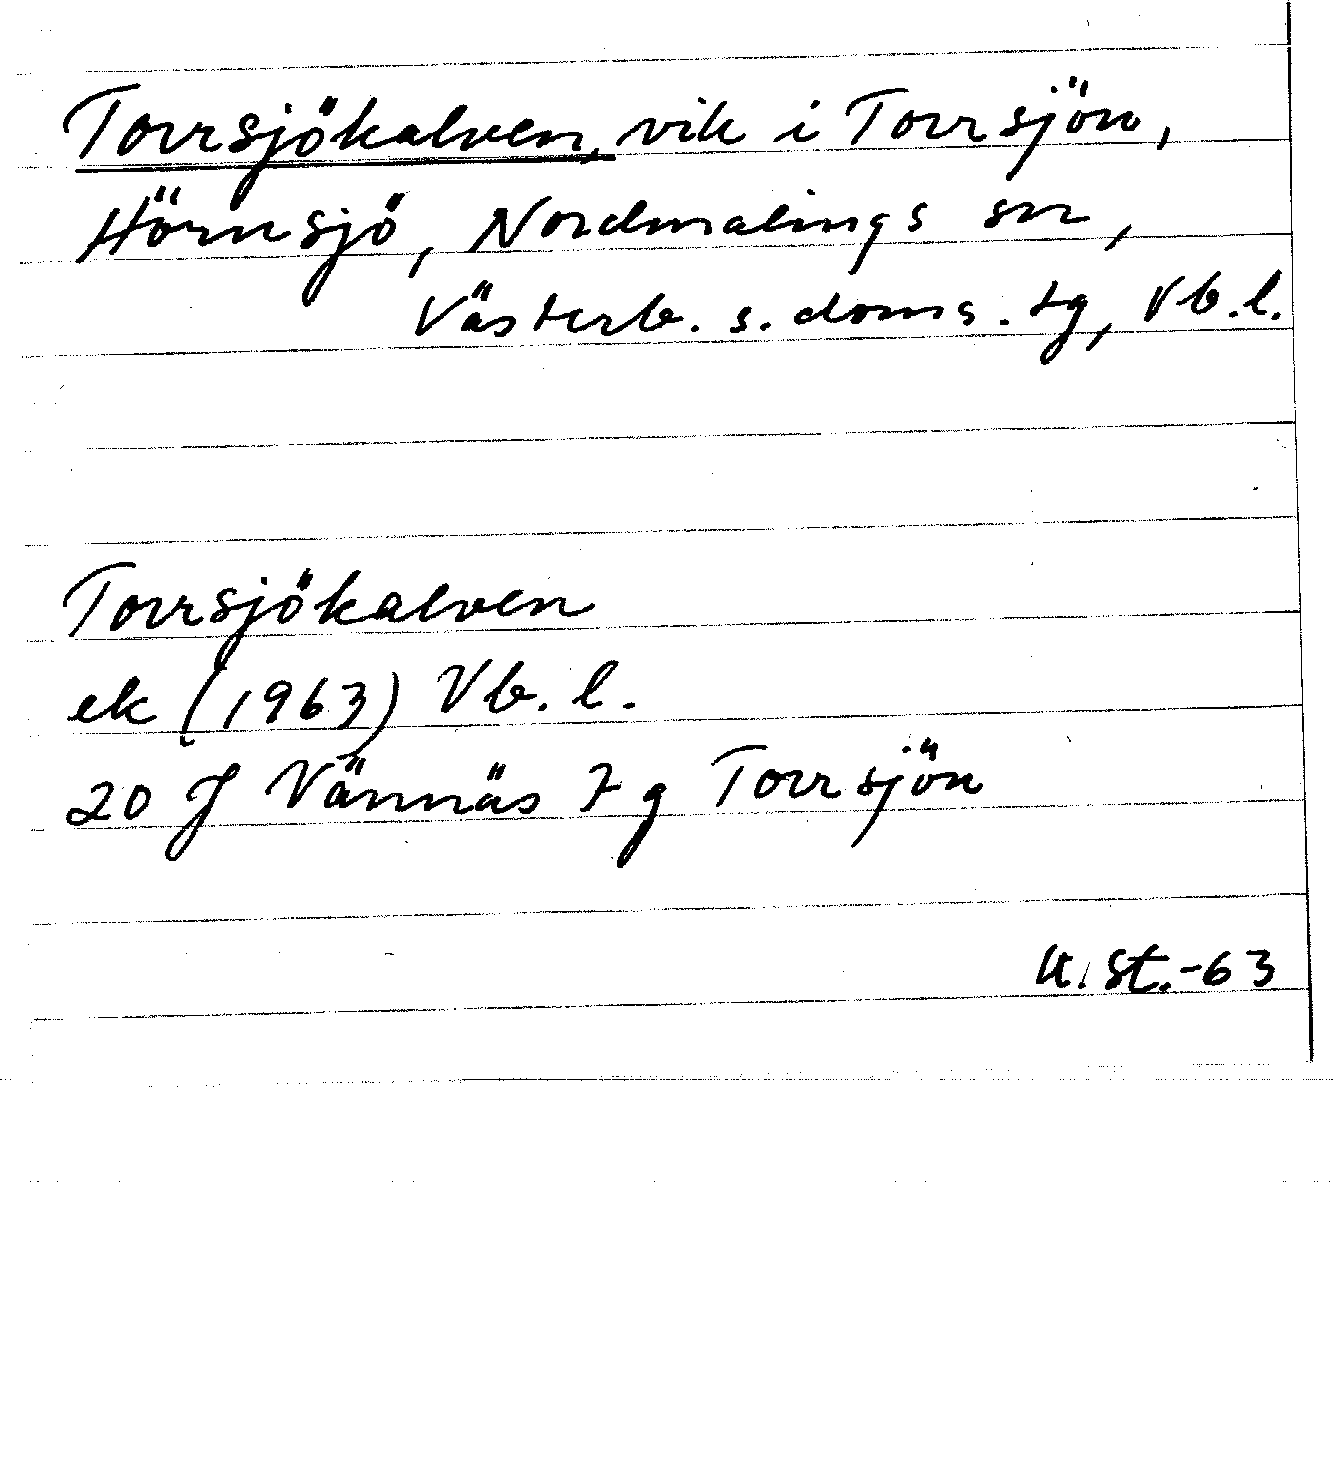 Torrsjökalven, vik i Torrsjön,
Hörnsjö, Nordmalings sn,
Västerb. s. doms. tg, Vb. l.
Torrsjökalven
ek (1963) Vb. l.
20 J Vännäs 7 g Torrsjön
U. St. -63